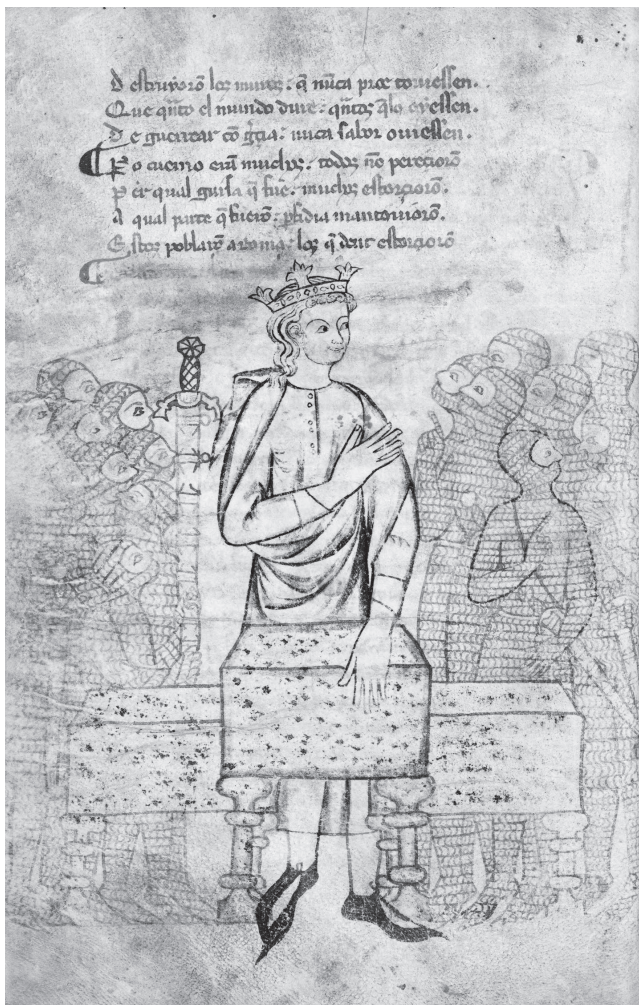 D estruyorõ los muros: q̃ nũca p̃ex touiessen.
Que q̃nto el mundo dure: q̃ntos q̃ lo oyessen.
D e guerrear cõ gr̃cia: nuca sabor ouiessen.
P o cuemo erã muchos: todos nõ pereçiorõ
P er qual guisa q̃ fue: muchos estorçiorõ.
A qual parte q̃ fuerõ: p̃fidia mantouiorõ.
E stos poblarõ a roma: los q̃ dent estorçiorõ